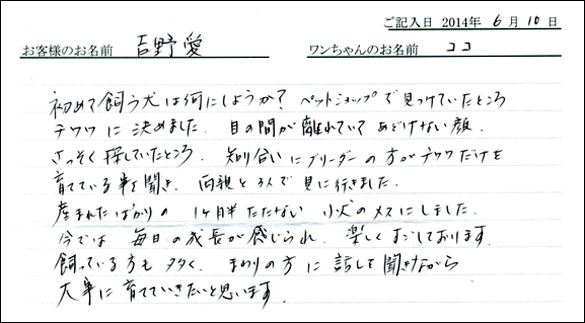 ご記入日 2014年 6月 10日
お客様のお名前 吉野愛 ワンちゃんのお名前 ココ
初めて飼う犬は何にしようか? ペットショップで見つけていたところ
チワワに決めました。目の間が離れていてあどけない顔。
さっそく探していたところ、知り合いにブリーダーの方がチワワだけを
育てている事を聞き、両親と3人で見に行きました。
産まれたばかりの1ヶ月半たたない小犬のメスにしました。
今では毎日の成長が感じられ、楽しくすごしております。
飼っている方も多く、まわりの方に話しを聞きながら
大事に育てていきたいと思います。